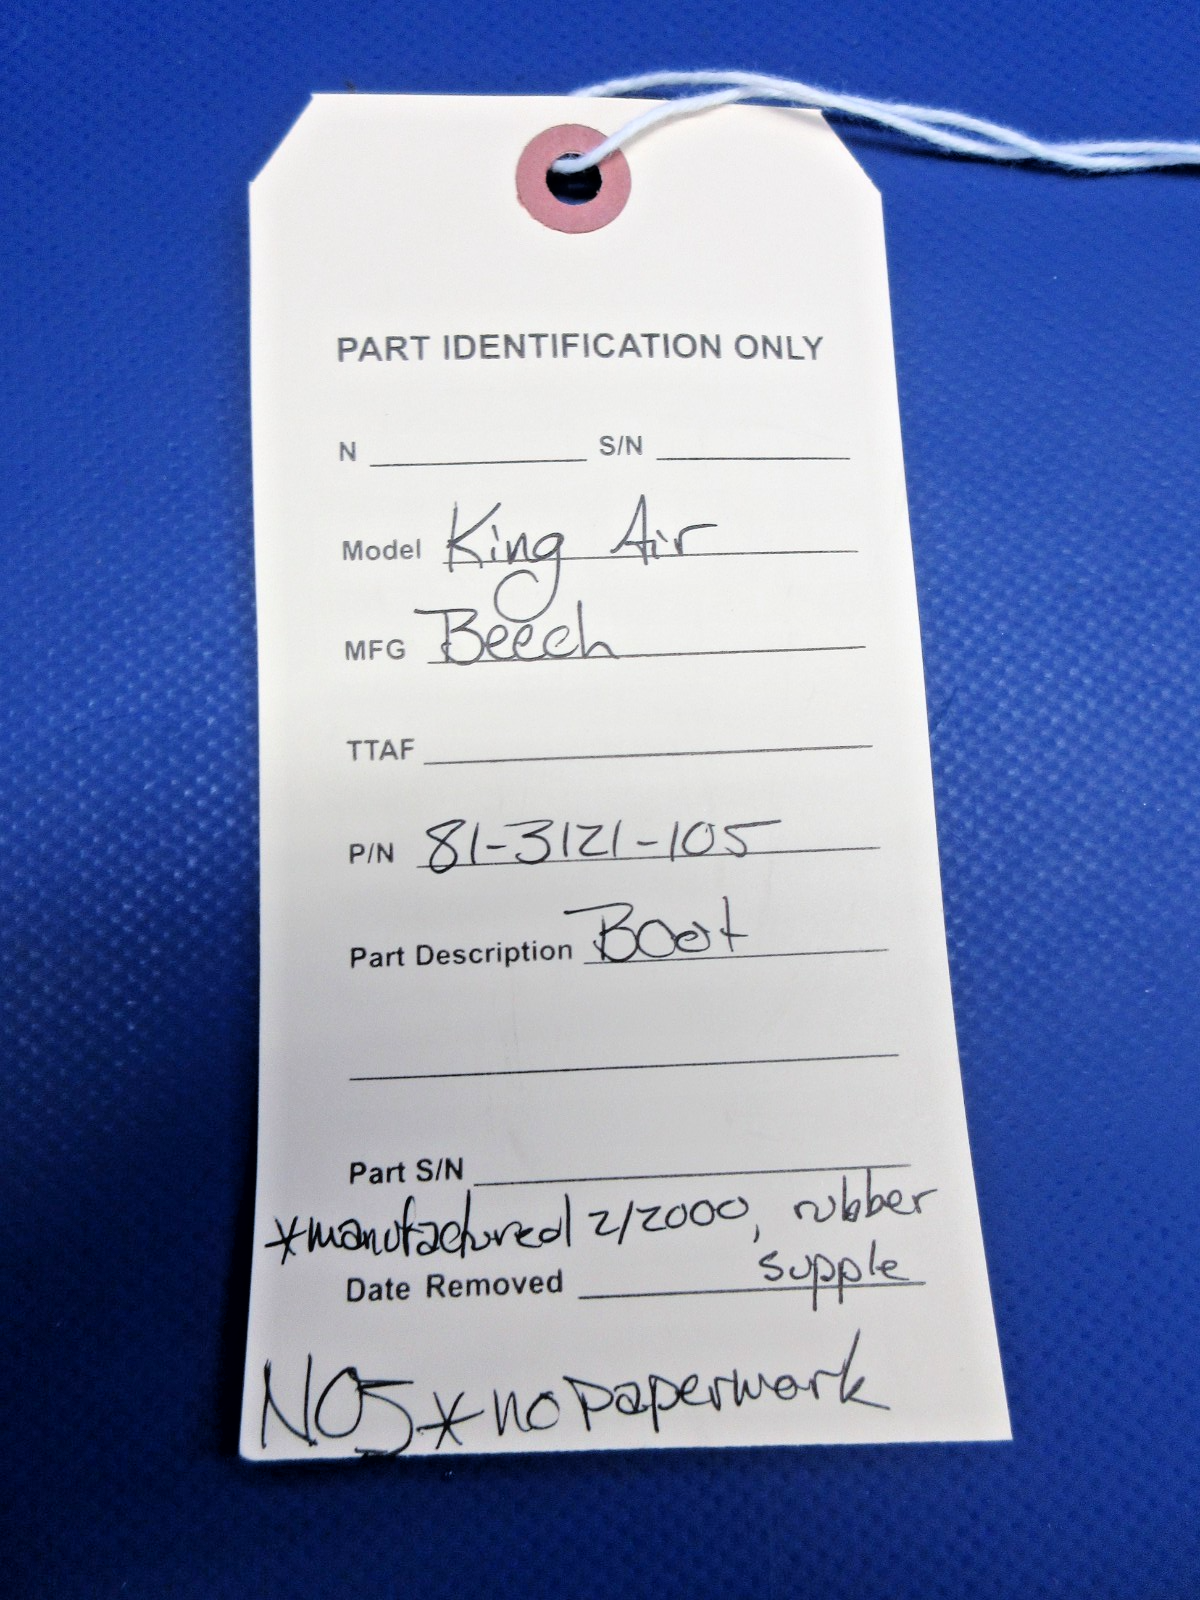 PART IDENTIFICATION ONLY
N S/N
Model King Air
MFG Beech
TTAF
P/N 81-3121-105
Part Description Boot
Part S/N
*manufactured 2/2000, rubber
supple
Date Removed
NOS * no paperwork